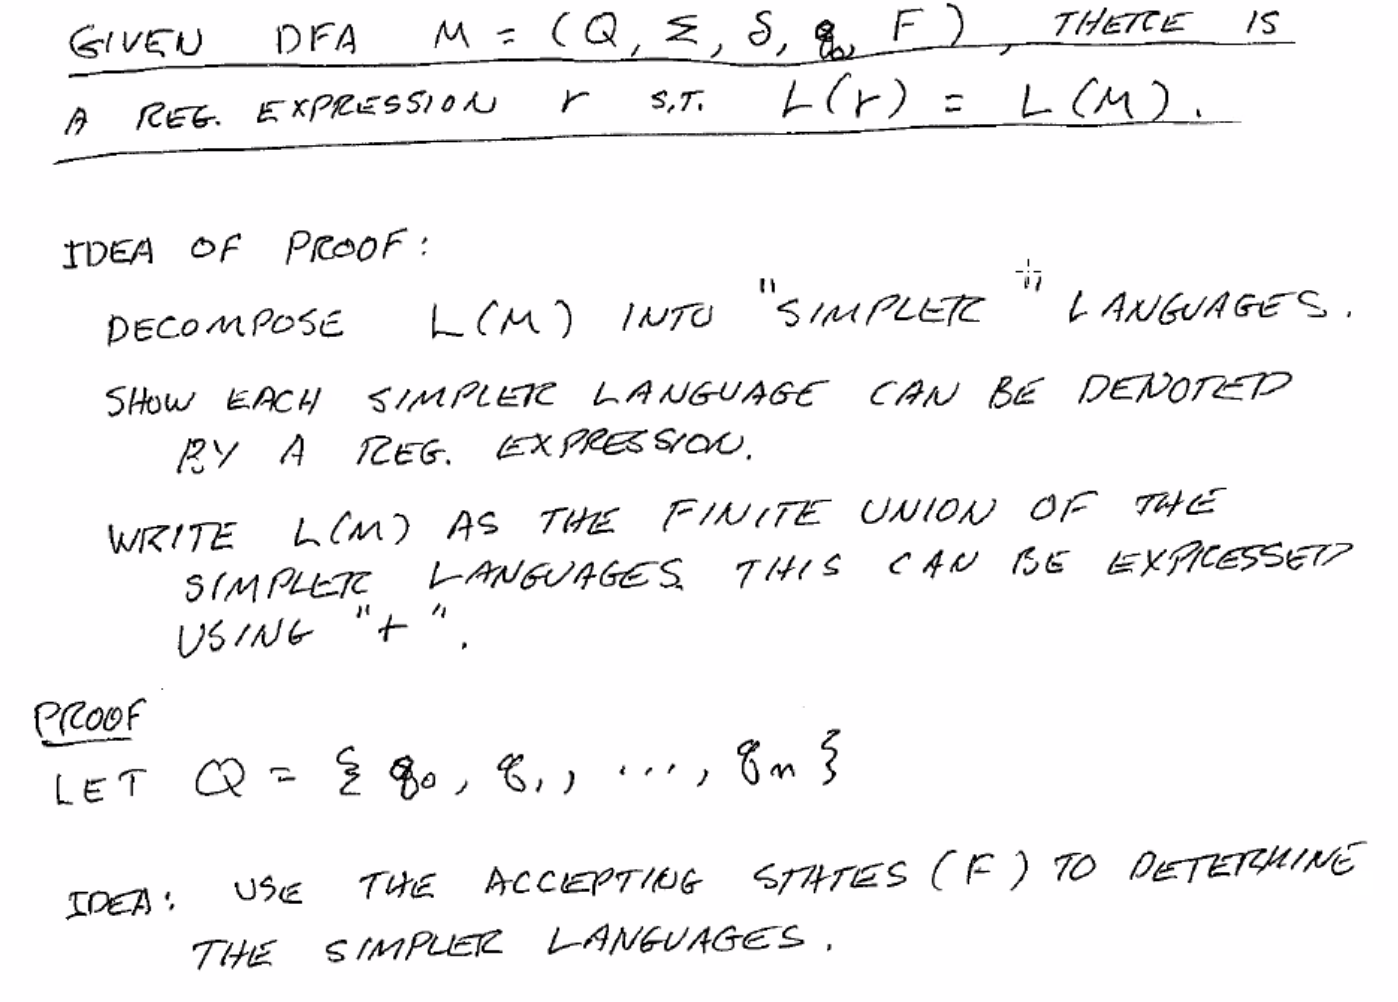 GIVEN DFA M = (Q, Σ, δ, q₀, F), THERE IS
A REG. EXPRESSION r S.T. L(r) = L(M).
IDEA OF PROOF:
DECOMPOSE L(M) INTO "SIMPLER" LANGUAGES.
SHOW EACH SIMPLER LANGUAGE CAN BE DENOTED
BY A REG. EXPRESSION.
WRITE L(M) AS THE FINITE UNION OF THE
SIMPLER LANGUAGES. THIS CAN BE EXPRESSED
USING "+".
PROOF
LET Q = { q₀, q₁, ..., qₙ }
IDEA: USE THE ACCEPTING STATES (F) TO DETERMINE
THE SIMPLER LANGUAGES.